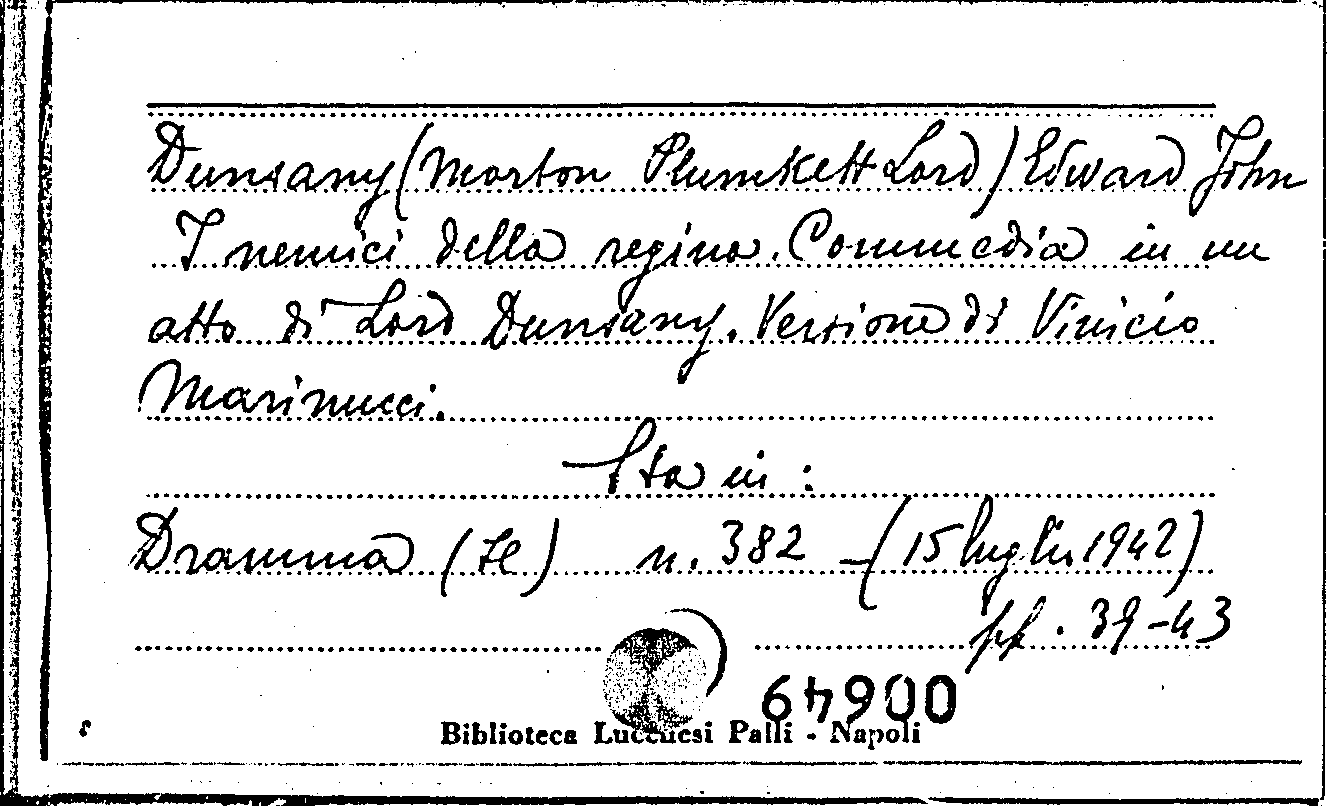 Dunsany (Morton Plumkett Lord) Edward John
I nemici della regina. Commedia in un
atto di Lord Dunsany. Versione di Vinicio
Marinucci.
Sta in:
Dramma (Il) n. 382 - (15 luglio 1942)
pp. 39-43
Biblioteca Lucchesi Palli - Napoli